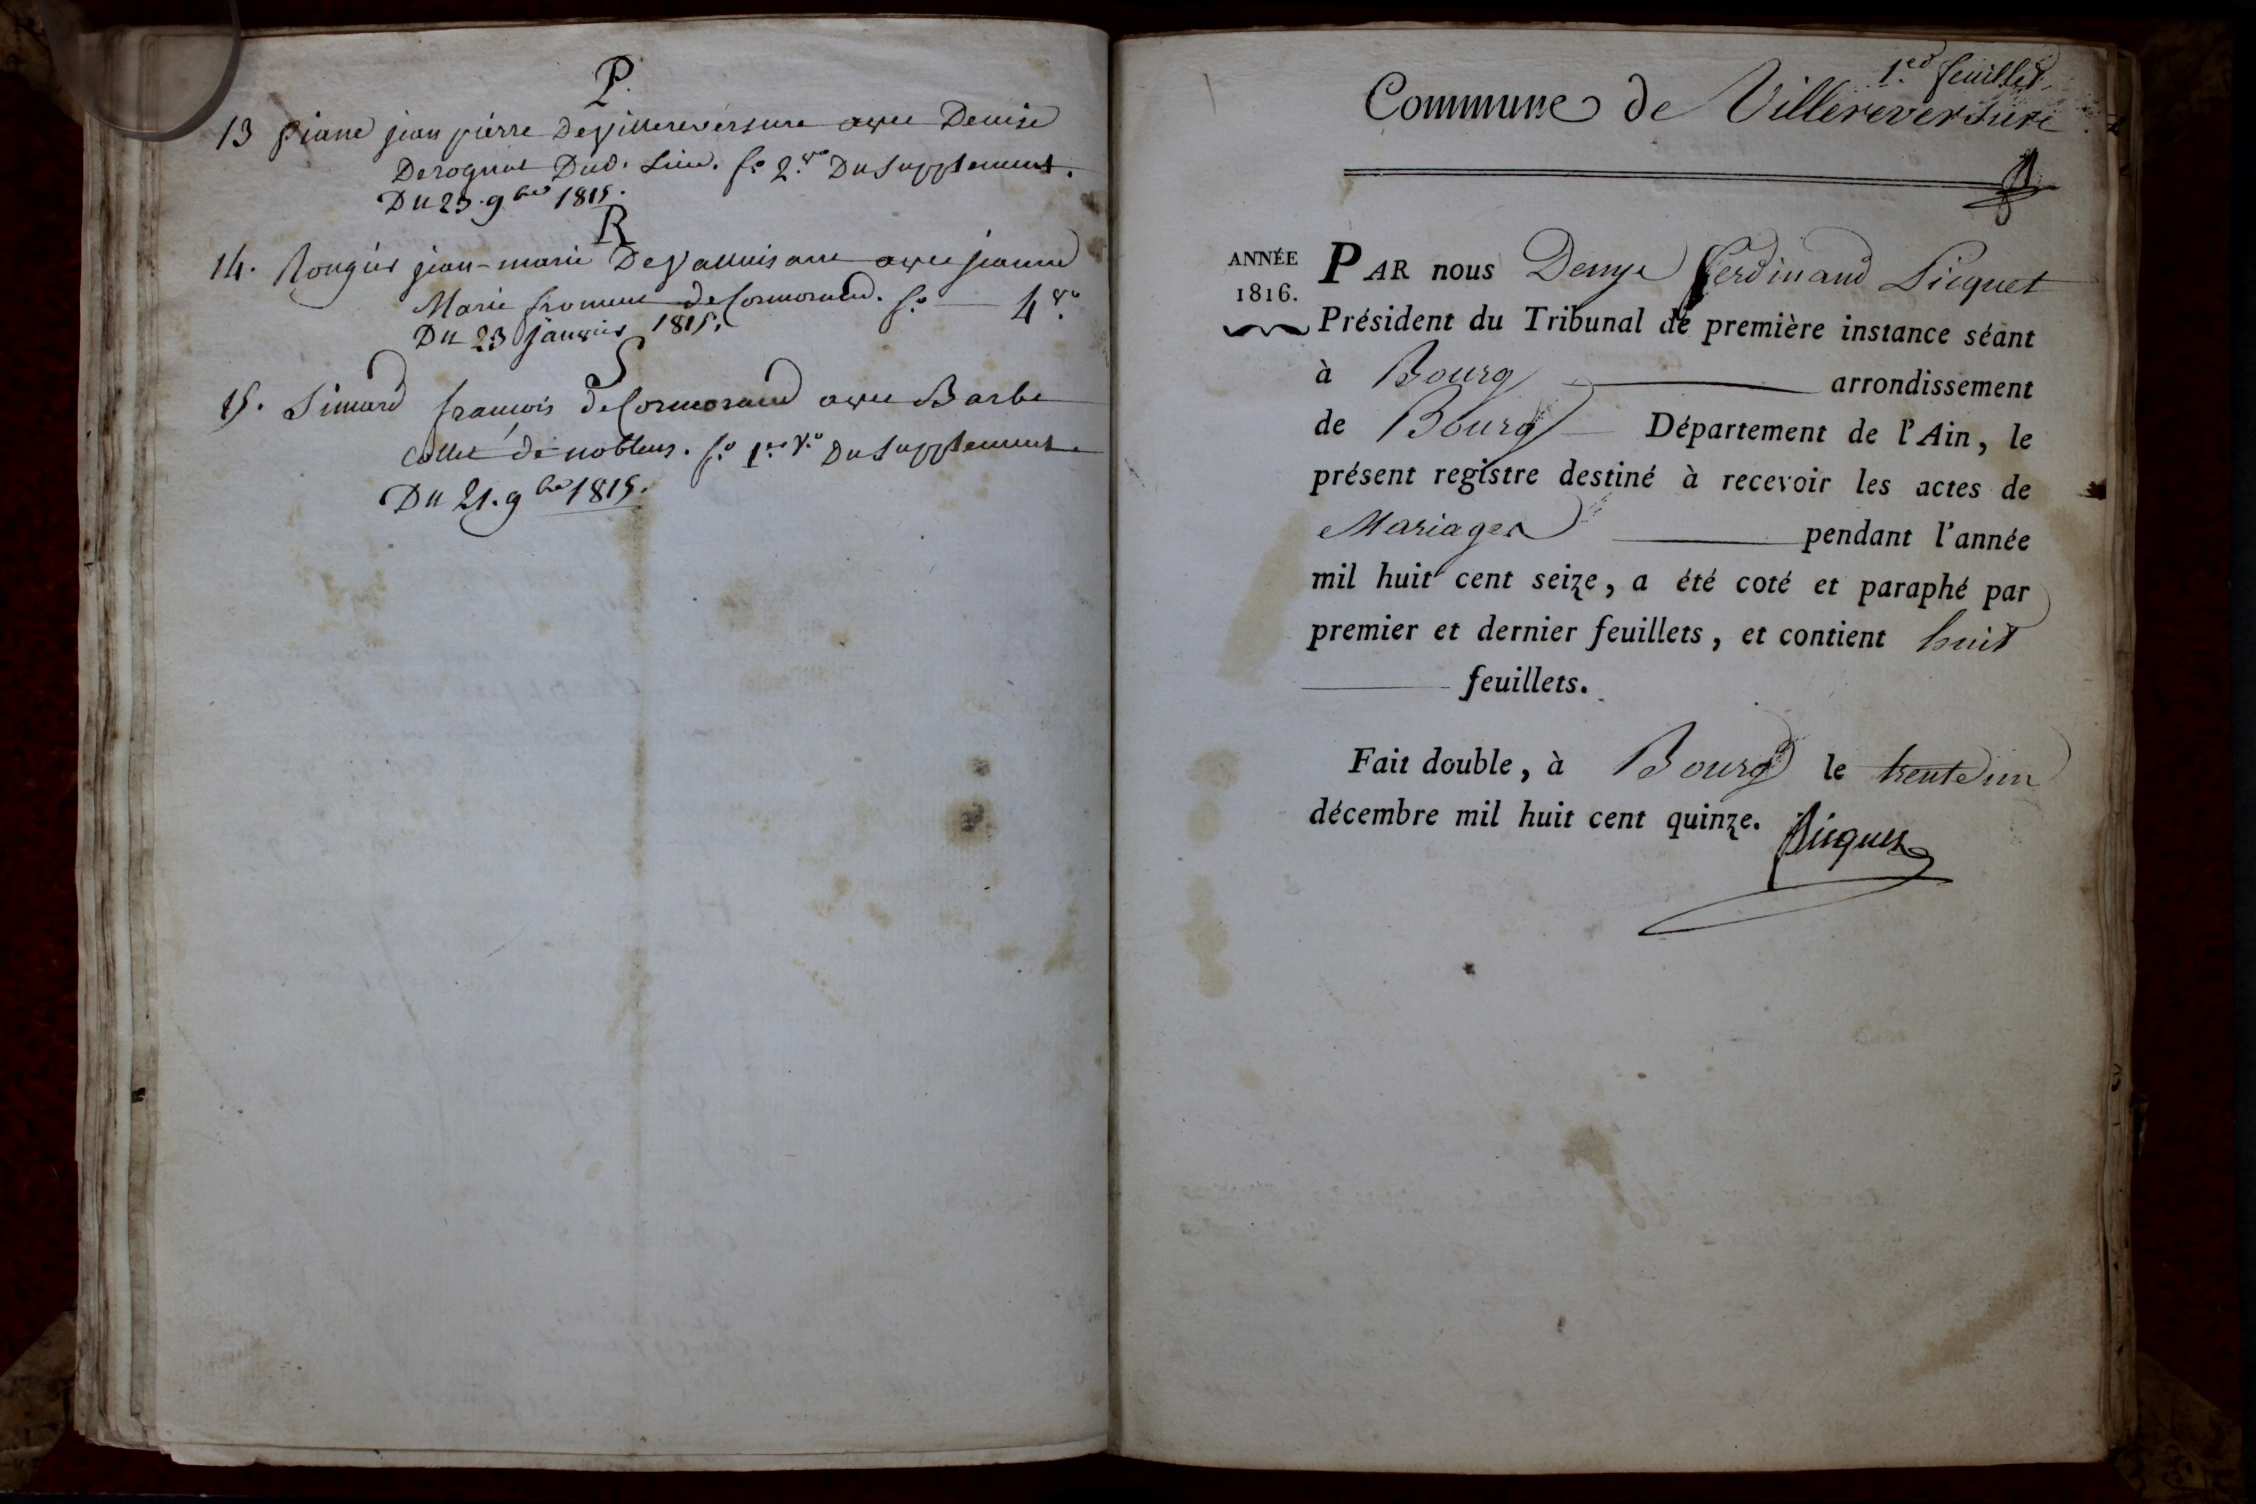 P.
13 piane jean pierre De villereversure avec Denise
Derognat Dud. Lieu. f.o 2.e v.o Du Supplement.
Du 23. 9bre 1815.
R
14. Rongier jean-marie De jeanne
Marie froment de Cormorand. f.o 4 v.o
Du 23 janvier 1815.
S
15. Simard françois de Cormorand avec Barbe
Collet de nobleus. f.o 1.er v.o Du Supplement.
Du 21. 9bre 1815.
1.er feuillet
Commune de Villereversure
ANNÉE
1816.
PAR nous Denys Ferdinand Picquet
Président du Tribunal de première instance séant
à Bourg arrondissement
de Bourg Département de l'Ain, le
présent registre destiné à recevoir les actes de
Mariages pendant l'année
mil huit cent seize, a été coté et paraphé par
premier et dernier feuillets, et contient huit
feuillets.
Fait double, à Bourg le trente un
décembre mil huit cent quinze.
Picquet